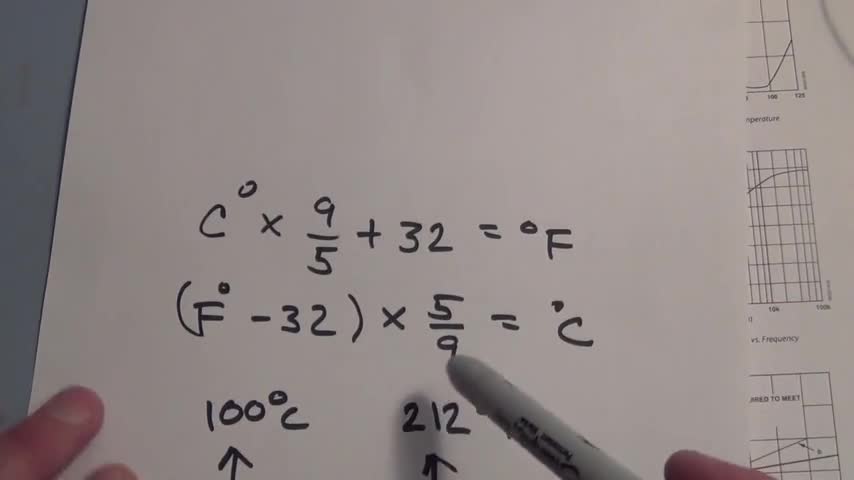 C° × 9/5 + 32 = °F
(F° - 32) × 5/9 = °C
100°C 212
100 125
mperature
10k 100k
vs. Frequency
RED TO MEET